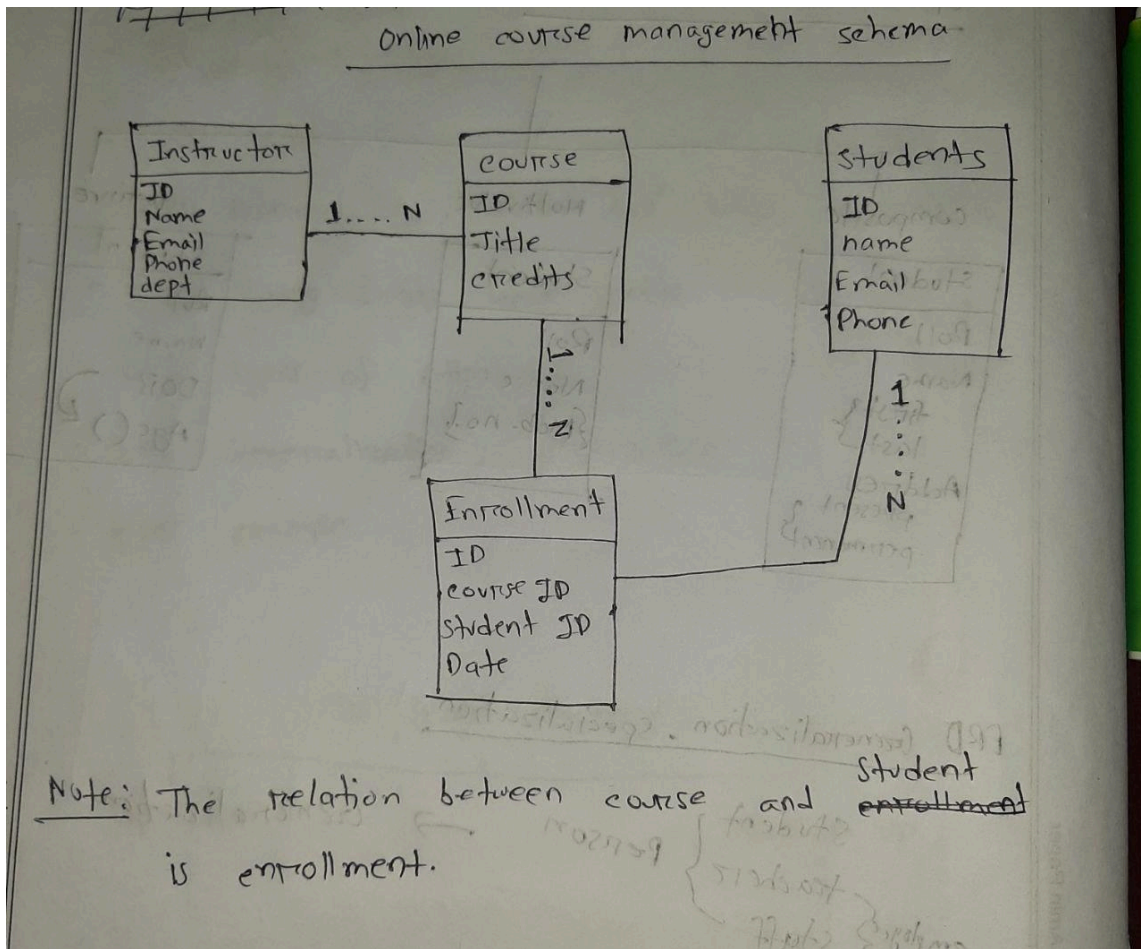 Online course management schema
Instructor
ID
Name
Email
Phone
dept
1.... N
course
ID
Title
credits
Students
ID
name
Email
Phone
1.....N
1.....N
Enrollment
ID
course ID
student ID
Date
Note: The relation between course and enrollment student
is enrollment.